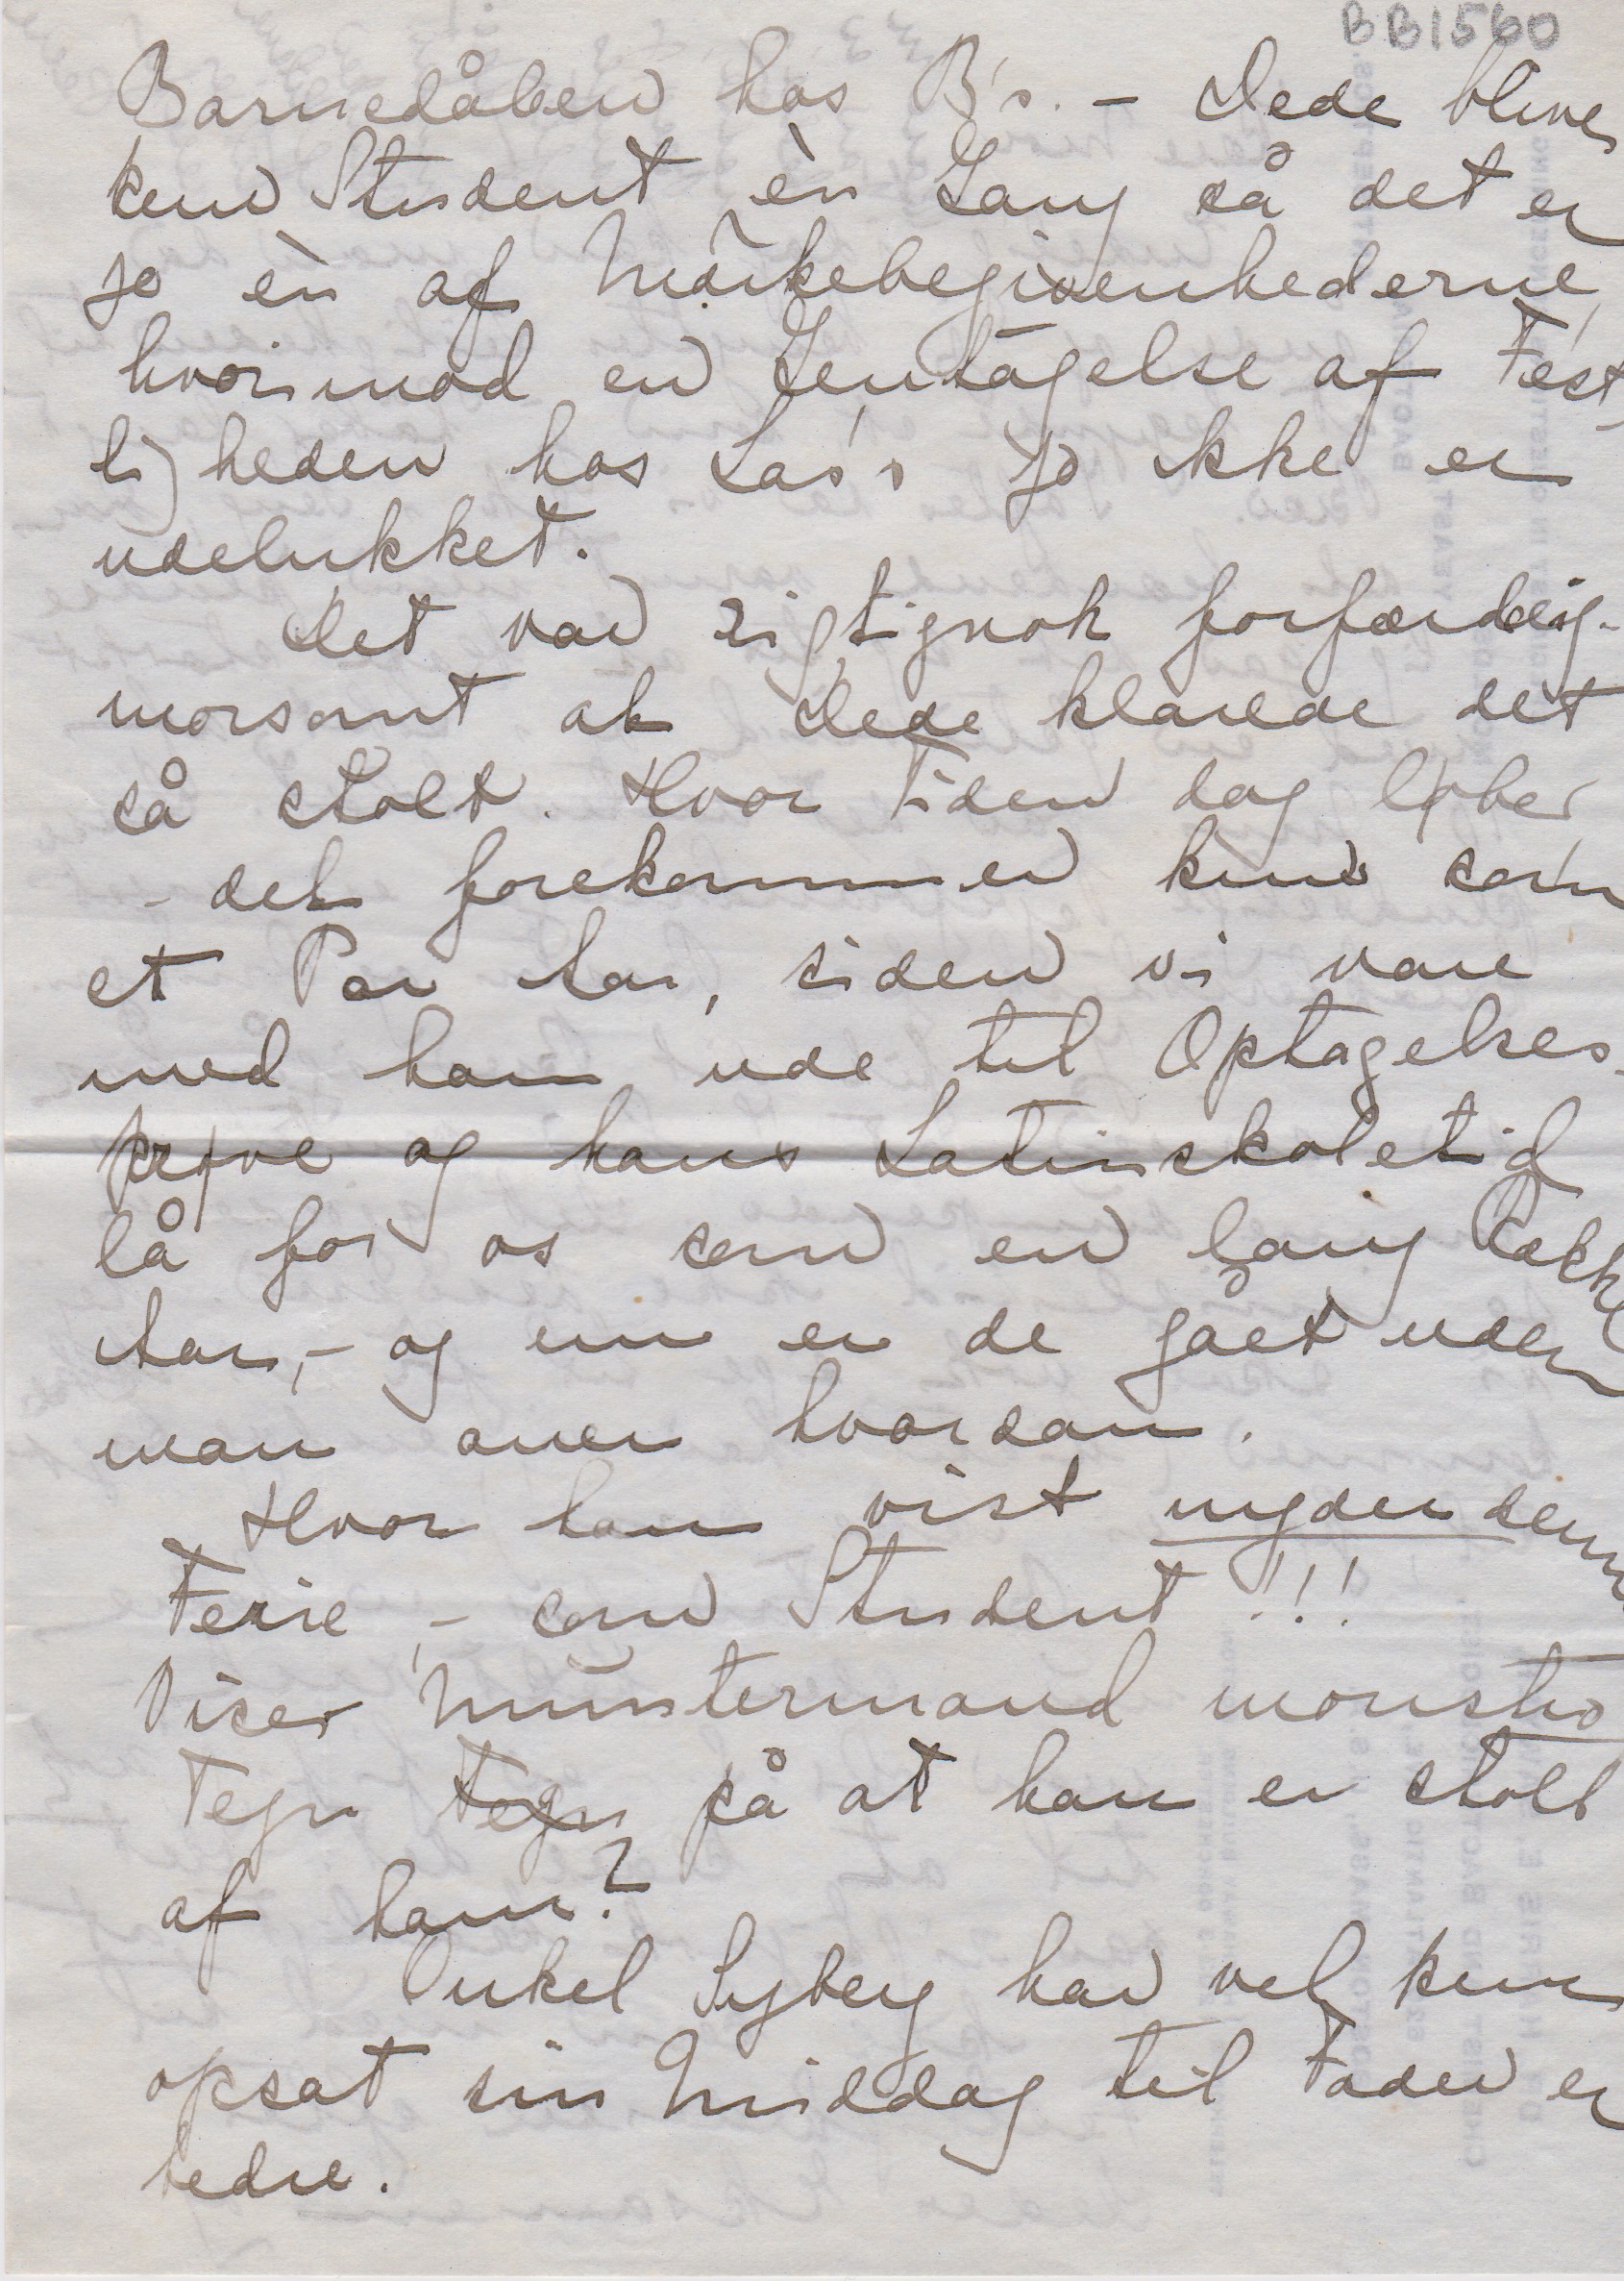 BB1560
Barnedåben hos B's. – Dede bliver
kun Student èn Gang så det er
jo èn af Mærkebegivenhederne,
hvorimod en Gentagelse af Fest-
ligheden hos Las's jo ikke er
udelukket.
Det var rigtignok forfærdelig
morsomt at Dede klarede det
så stolt. Hvor Tiden dog løber
– det forekommer kun som
et Par Aar, siden vi vare
med ham ude til Optagelses-
prøve og hans Latinskoletid
lå for os som en lang Række
Aar, – og nu er de gået uden
man aner hvordan.
Hvor han vist nyder denne
Ferie, – som Student!!!
Viser Münstermand monstro
Tegn Tegn på at han er stolt
af ham?
Onkel Syberg har vel kun
opsat sin Middag til Fader er
bedre.